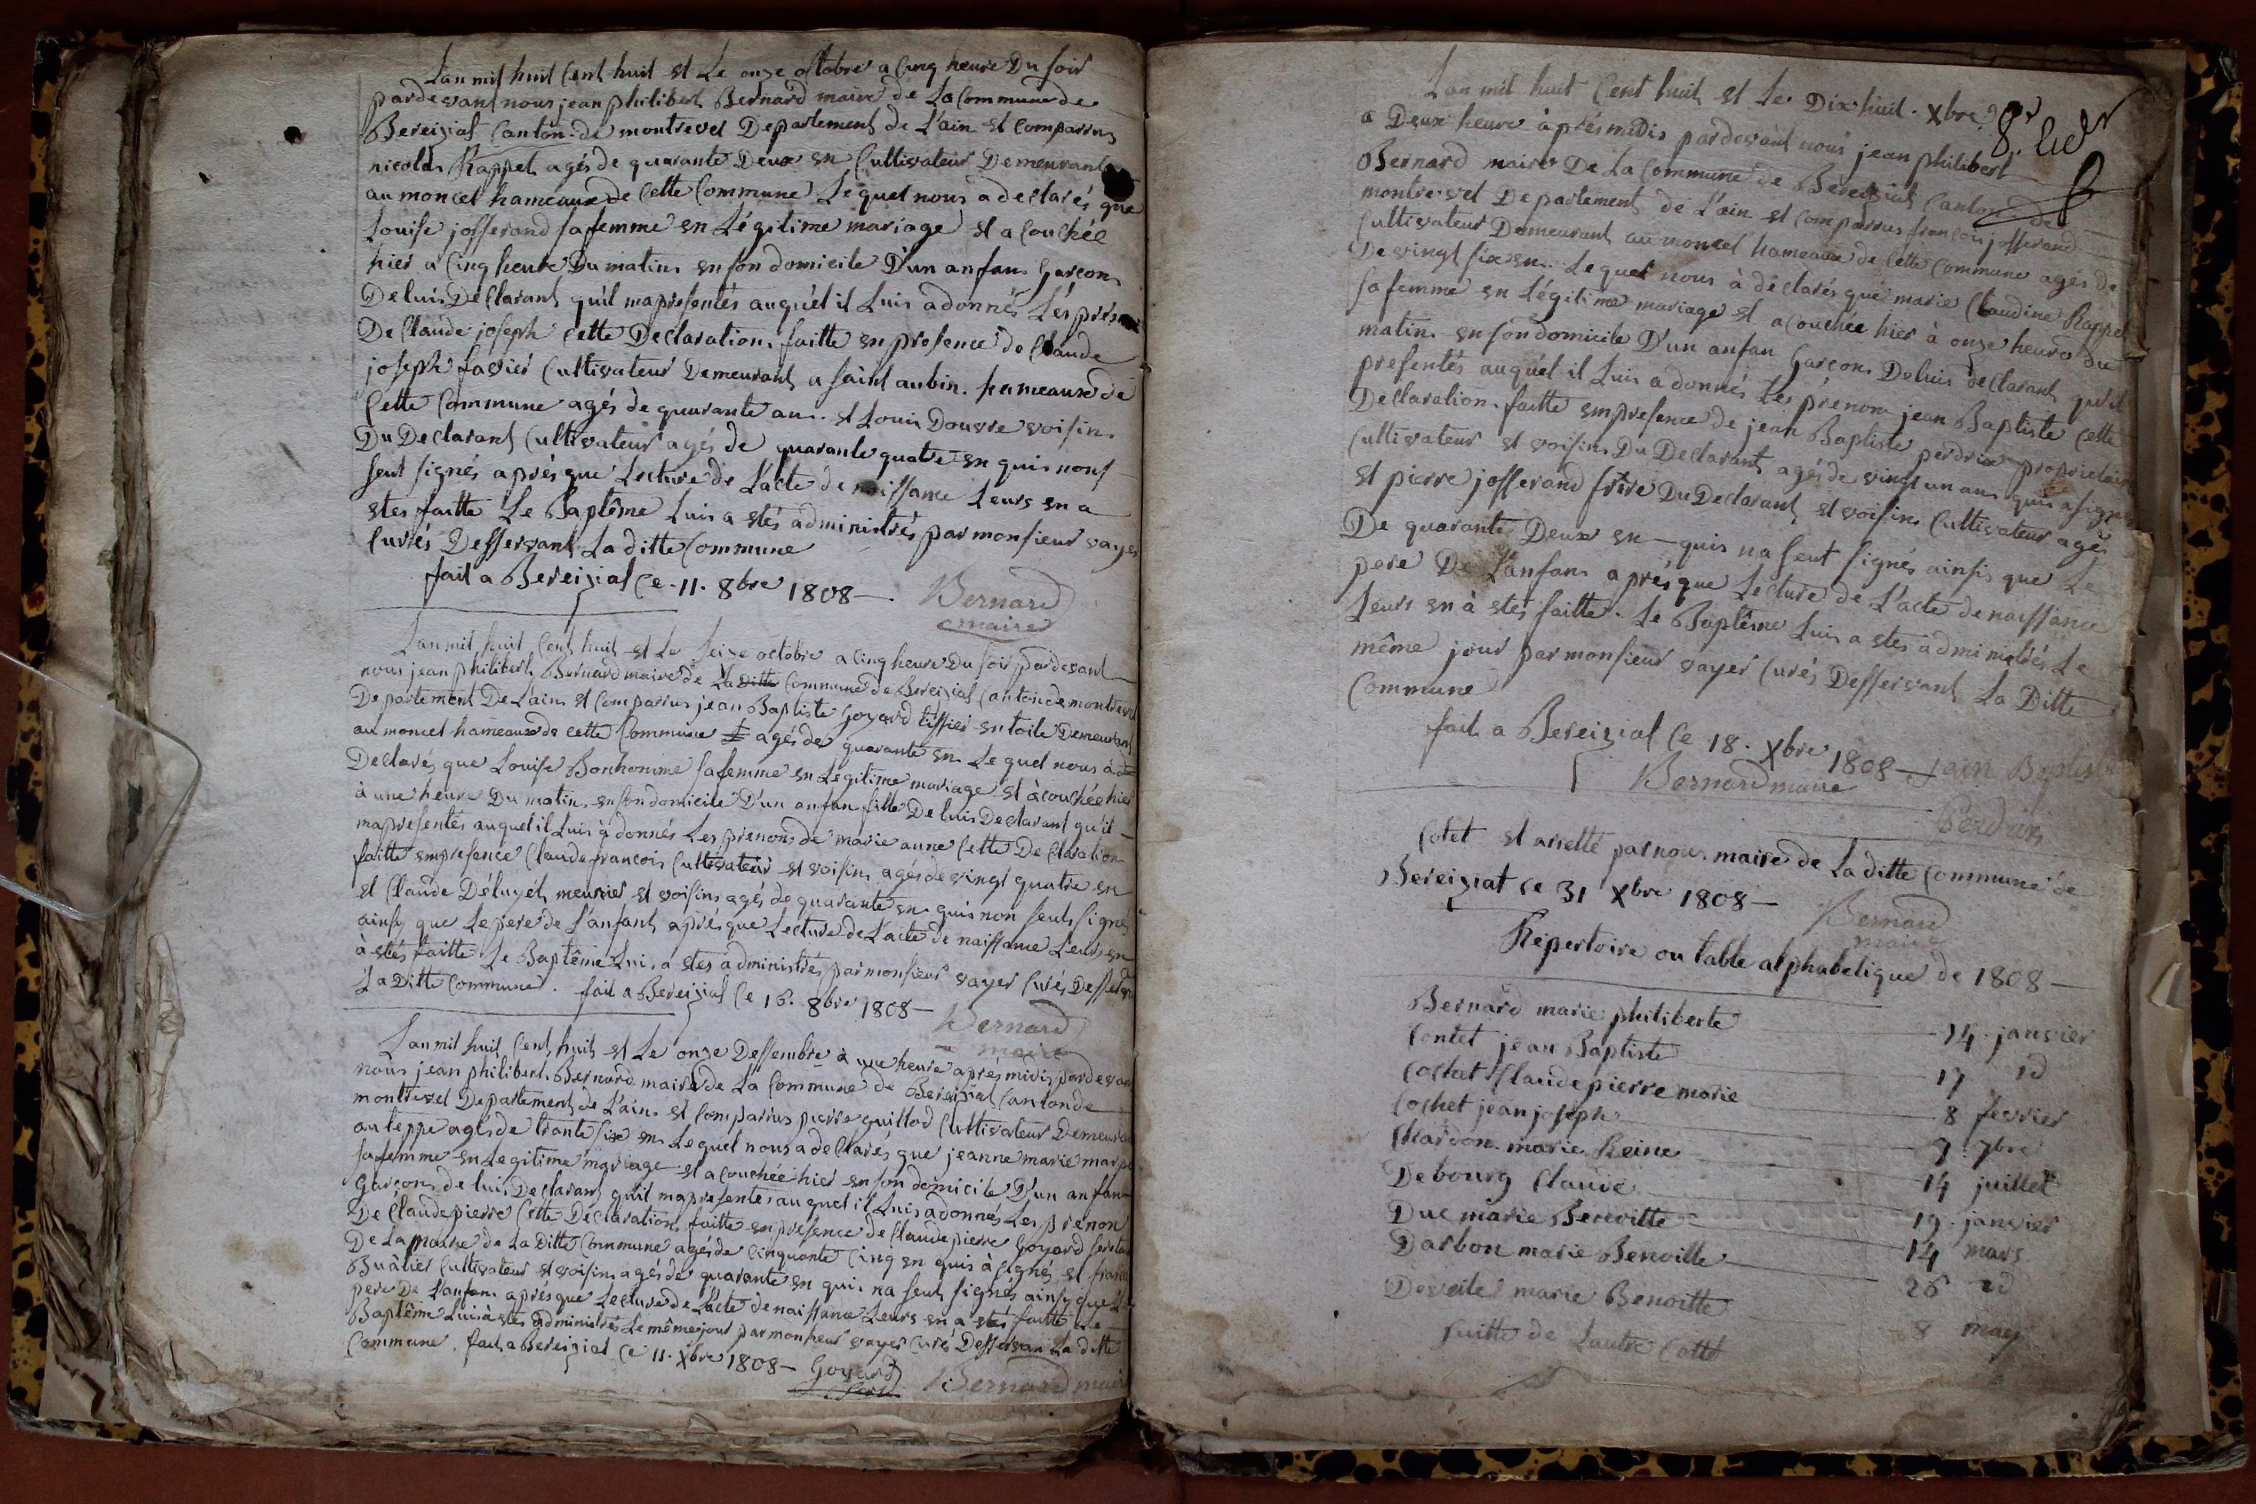 Lan mil huit Cent huit et Le onze octobre a Cinq heure Du soir
pardevant nous jean philibert Bernard maire de La Commune de
Bereizial Canton de montrevel Departement de L'ain et Comparrus
nicolas Rappet agés de quarante Deux en Cultivateur Demeurant
au moncel hameaux de Cette Commune Lequel nous a declarés que
Louise josserand sa femme en Légitime mariage et acouchée
hier a Cinq heure Du matin en son domicile D'un anfan Garçon
De luis Declarant qu'il mapresentés auquél il Luis adonnés Lés prénom
De Claude joseph Cette Declaration faitte en presence de Claude
joseph favier Cultivateur Demeurant a saint aubin hameaux de
Cette Commune agés de quarante an et Louis Douvre voisin
Du Declarant Cultivateur agés de quarante quatre en quis nons
seut signés aprés que Lecture de L'acte de naissance Leurs en a
etes faitte Le Baptême Luis a etés administrés par monsieur vayer
Curés Desservant La ditte Commune
fait a Bereizial Ce 11. 8bre 1808 — Bernard
maire
Lan mil huit Cent huit et Le seize octobre a Cinq heure Du soir pardevant
nous jean philibert Bernard maire de La Ditte Commune de Bereizial Canton de montrevel
Departement De Lain et Comparrus jean Baptiste Goyard tissier en toile Demeurant
au moncel hameaux de cette Commune agés de quarante en Lequel nous à
Declarés que Louise Bonhomme sa femme en Legitime mariage et àcouchée hier
à une heure Du matin en son domicile D'un anfan fille De luis Declarant qu'il
mapresentés auquel il Luis à donnés Les prenons de marie anne Cette Declaration
faitte empresence Claude francois Cultivateur et voisin agés de vingt quatre en
et Claude Déluyét meunier et voisins agés de quarante en quis non seuts signés
ainsy que Le pere de L'anfant aprés que Lecture de L'acte de naissance Leurs en
à etés faitte Le Baptême Lui a etes administrés par monsieur vayer Curés Desser
La Ditte Commune. fait a Bereizial Ce 16. 8bre 1808 — Bernard
maire
Lan mil huit Cent huit et Le onze Dessembre à une heure aprés midis pardevan
nous jean philibert Bernard maire de La Commune de Bereizial Canton de
montrevel Departement de L'ain et Comparrus pierre guillod Cultivateur Demeurant
au teppe agés de trante six en Lequel nous a declarés que jeanne marie
sa femme en Legitime mariage et acouchée hier en son domicile D'un anfan
Garçons de luis Declarant qu'il mapresentes auquel il Luis adonnés Les prénon
De Claude pierre Cette Déclaration faitte en presence de Claude pierre Goyard
De La maire de La Ditte Commune agés de Cinquante Cinq en quis à signés et
Buâtier Cultivateur et voisin agés de quarante en qui na seut signés ainsy que Le
pere De Lanfan aprés que Lecture de L'acte de naissance Leurs en a etés faitte Le
Baptême Luis à etés administrés Le même jour par monsieur vayer Curés Desservan La ditte
Commune. fait a Bereizial Ce 11. Xbre 1808 — Goyard Bernard maire
Lan mil huit Cent huit et Le Dix huit. Xbre
8.
a Deux heure à prés midis pardevant nous jean philibert
Bernard maire De La Commune de Bereizial Canton de
montrevel Departement de L'ain et Comparrus francois josserand
Cultivateur Demeurant au moncel hameaux de Cette Commune agés de
De vingt six en Lequel nous à déclarés que marie Claudine Rappet
sa femme en Légitime mariage et acouchée hier à onze heure du
matin en son domicile D'un anfan Garçon De luis declarant qu'il
presentés auquél il Luis a donnés Les prénom jean Baptiste Cette
Declaration faitte empresence de jean Baptiste perdrix proprietaire
Cultivateur et voisin Du Declarant agés de vingt un an quis asignés
et pierre josserand frére Du Declarant et voisin Cultivateur agés
De quarante Deux en — quis na seut signés ainsis que Le
pere De L'anfan aprés que Lecture de L'acte de naissance
Leurs en à etes faitte. Le Baptême Luis a etes administrés Le
même jour par monsieur vayer Curés Desservant La Ditte
Commune
fait a Bereizial Ce 18. Xbre 1808 — jean Baptiste
Bernard maire
Perdrix
Cotet et arretté par nous maire de La ditte Commune de
Bereiziat Ce 31 Xbre 1808 — Bernard
maire
Répertoire ou table alphabetique de 1808 —
Bernard marie philiberte — 14. janvier
Contet jean Baptiste — 17 id
Cochet Claude pierre marie — 8 fevrier
Cochet jean joseph — 7. 7bre
Chardon marie Reine — 14 juillet
Debourg Claude — 19. janvier
Duc marie Benoitte — 14 mars
Darbon marie Benoitte — 26 id
Desvite marie Benoitte — 8 may
suitte de Lautre Cotté